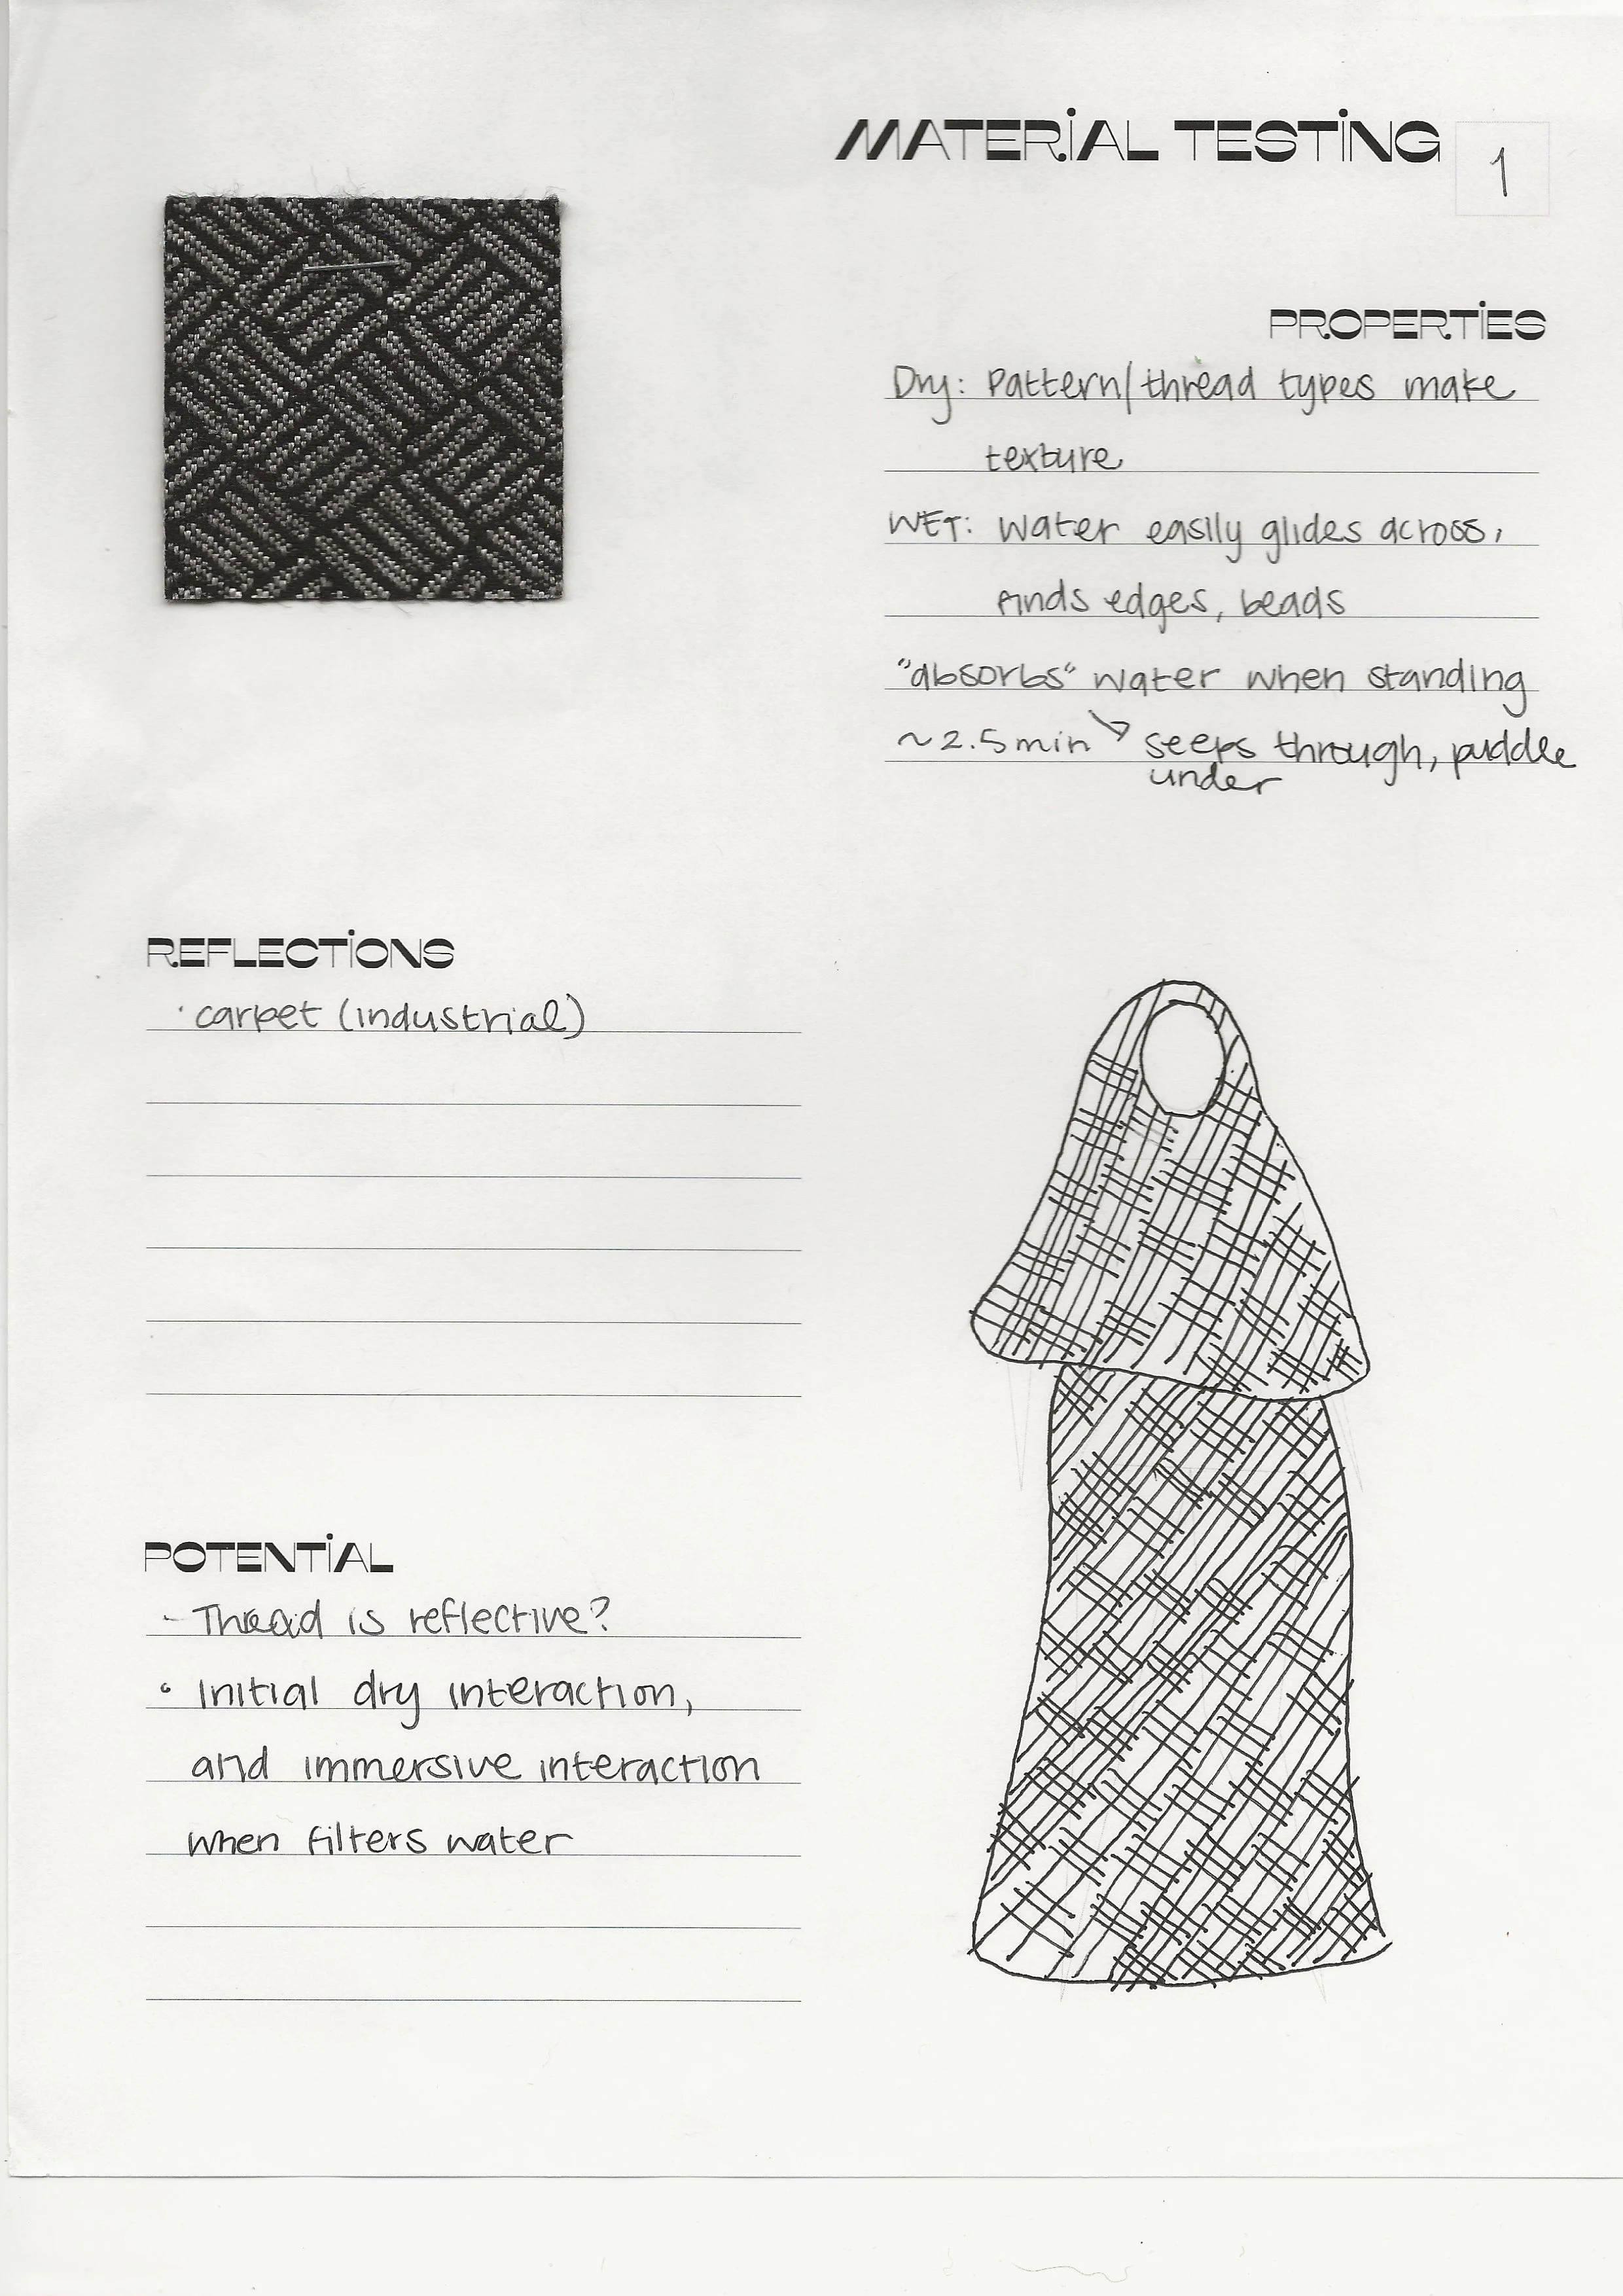 MATERIAL TESTING
1
PROPERTIES
Dry: Pattern/thread types make
texture
WET: Water easily glides across,
finds edges, beads
"absorbs" water when standing
~2.5min ↘ seeps through, puddle
under
REFLECTIONS
· carpet (industrial)
POTENTIAL
- Thread is reflective?
• Initial dry interaction,
and immersive interaction
when filters water